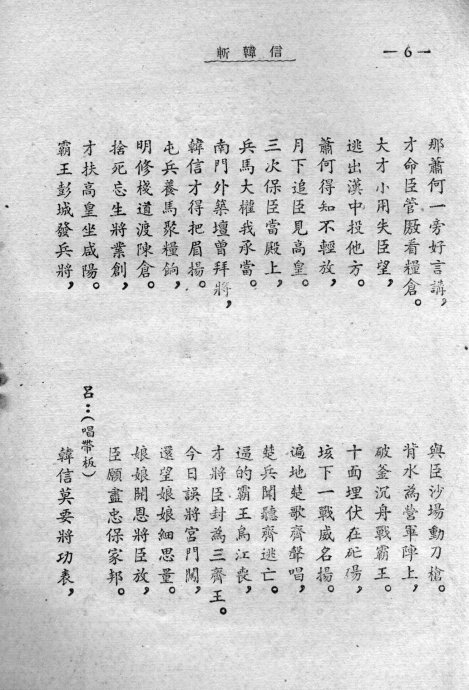 斬韓信
—6—
那蕭何一旁好言講，
才命臣管厫看糧倉。
大才小用失臣望，
逃出漢中投他方。
蕭何得知不輕放，
月下追臣見高皇。
三次保臣當殿上，
兵馬大權我承當。
南門外築壇曾拜將，
韓信才得把眉揚。
屯兵養馬聚糧餉，
明修棧道渡陳倉。
捨死忘生將業創，
才扶高皇坐咸陽。
霸王彭城發兵將，
與臣沙場動刀槍。
背水為營軍陣上，
破釜沉舟戰霸王。
十面埋伏在
垓下一戰威名揚。
遍地楚歌齊聲唱，
楚兵聞聽齊逃亡。
逼的霸王烏江喪，
才將臣封為三齊王。
今日誤將宮門闖，
還望娘娘細思量。
娘娘開恩將臣放，
臣願盡忠保家邦。
呂：（唱帶板）
韓信莫要將功表，